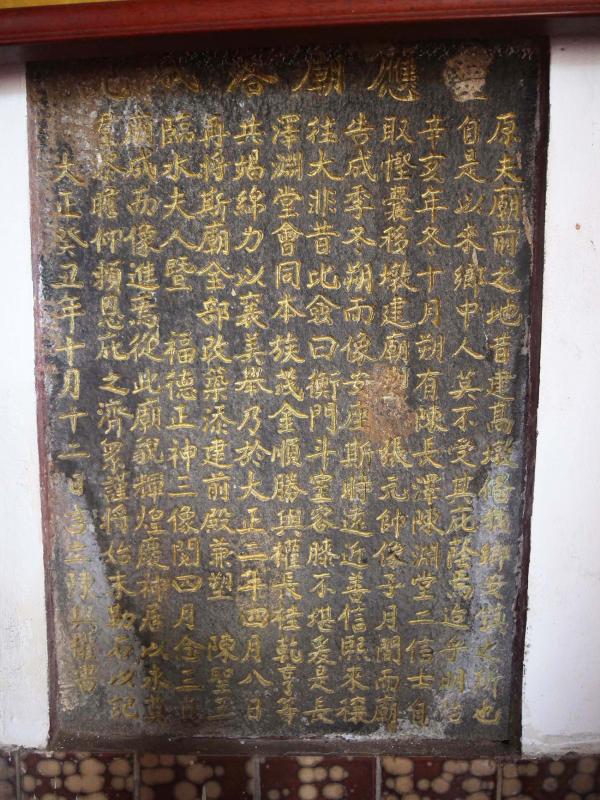 應廟
原夫廟前之地昔建高墩
自是以來鄉中人莫不受其庇蔭焉造乎明治
辛亥年冬十月朔有陳長澤陳淵堂二信士自
取慳囊移墩建廟張元帥像子月間而廟
告成季冬朔而像安座斯時遠近善信熙來穰
往大非昔比僉曰衡門斗室容膝不堪爰是長
澤淵堂會同本族茂金順勝與權長桂乾亨等
共竭綿力以襄美舉乃於大正二年四月八日
再將斯廟全部改築添建前殿兼塑陳聖王
臨水夫人暨 福德正神三像閱四月念三日
廟成而像進焉從此廟貌輝煌慶神居以永奠
瞻仰賴恩庇之濟眾謹將始末勒石以記
大正癸丑年十月十二日